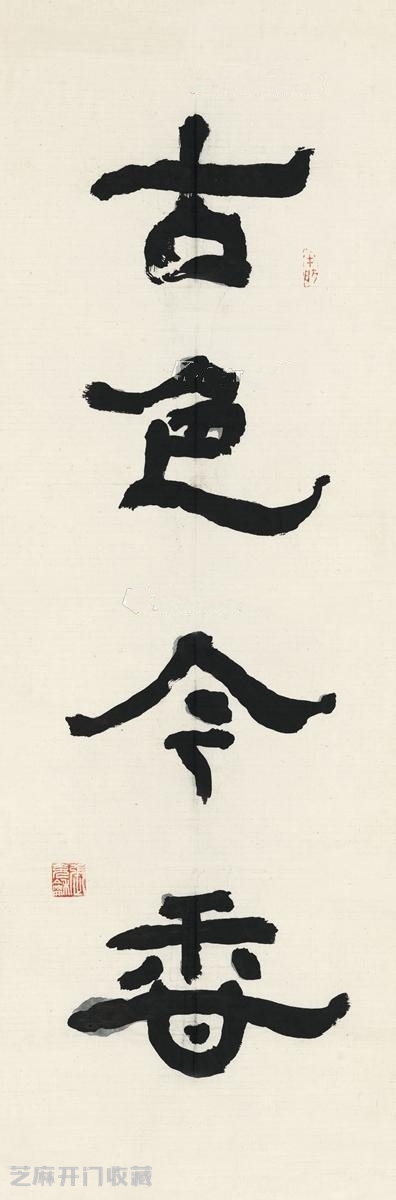 古色今香
芝麻开门收藏